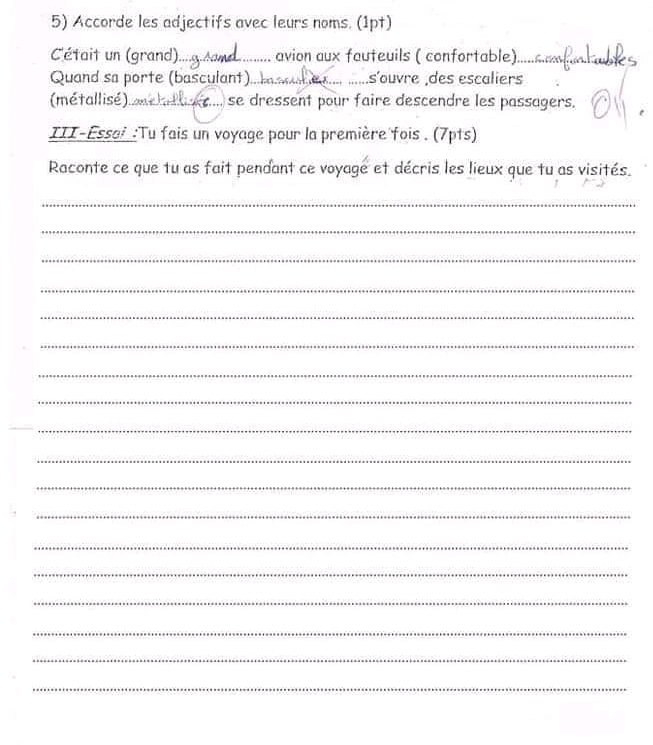 5) Accorde les adjectifs avec leurs noms. (1pt)
C'était un (grand)...grand......... avion aux fauteuils ( confortable).....confortables
Quand sa porte (basculant)... ......s'ouvre ,des escaliers
(métallisé)... .... se dressent pour faire descendre les passagers.
III-Essai :Tu fais un voyage pour la première fois . (7pts)
Raconte ce que tu as fait pendant ce voyage et décris les lieux que tu as visités.